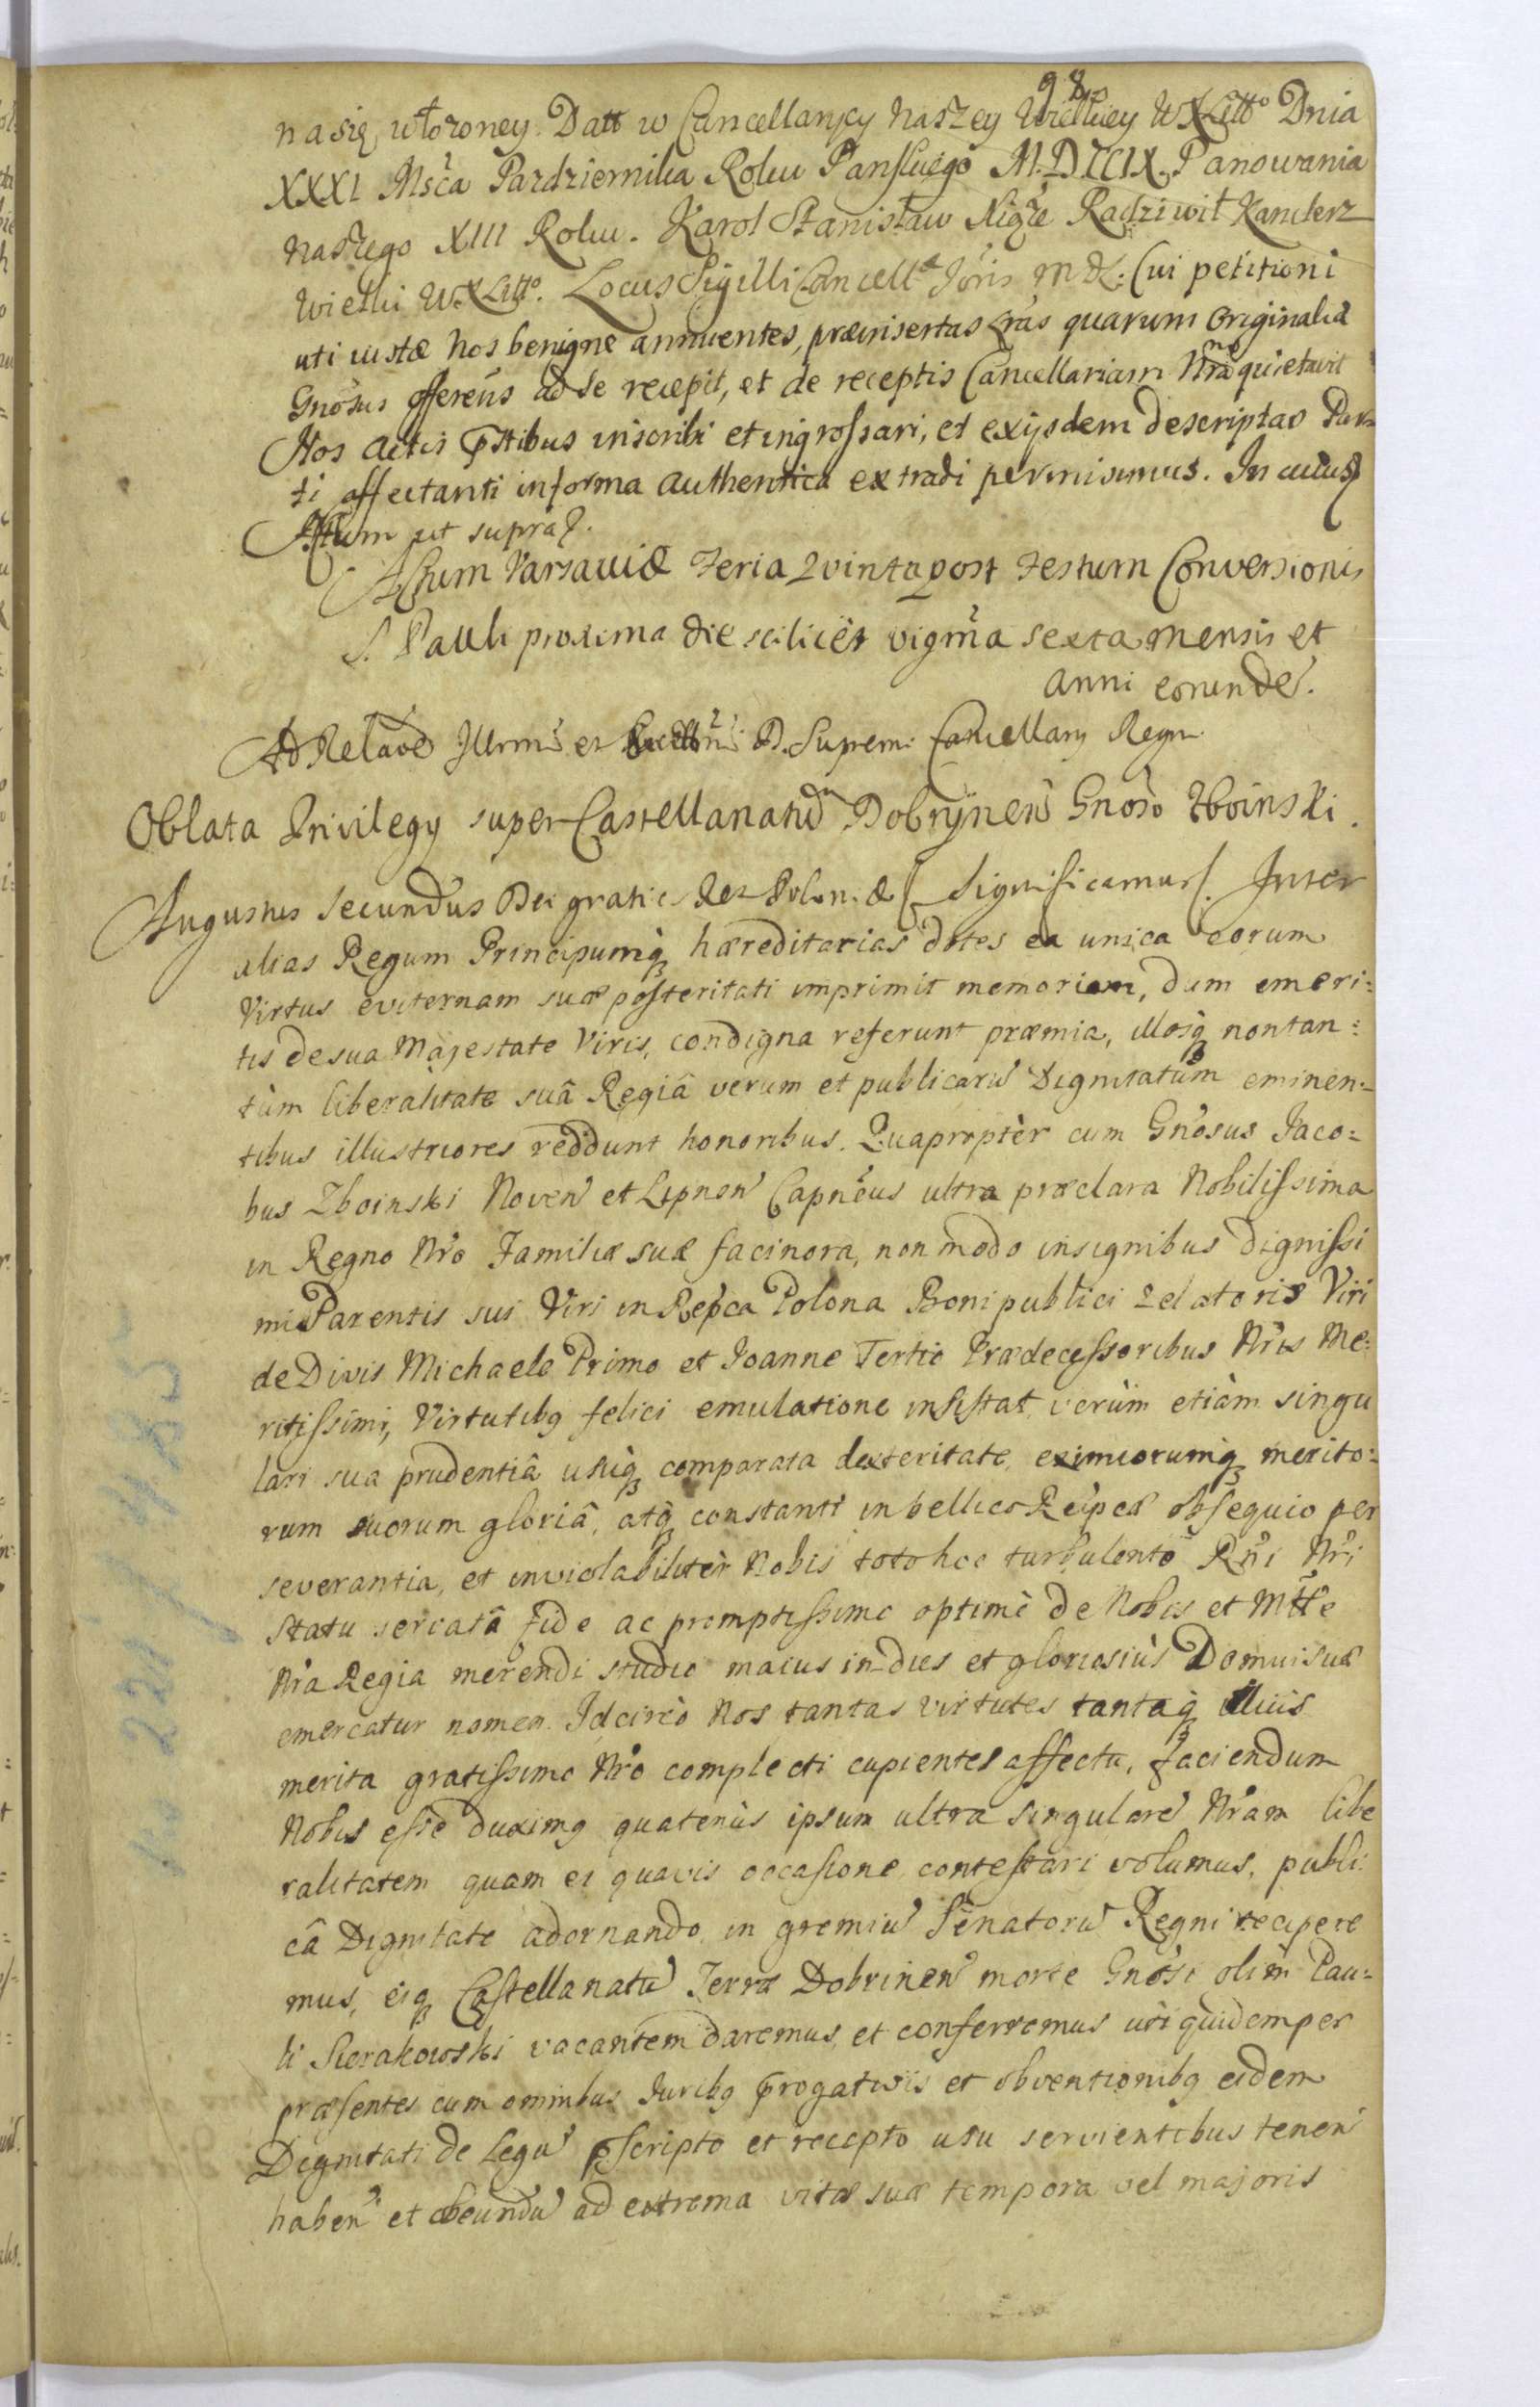 98
na się włozoney. Datt w Cancellaryey naszey Wielkiey WXLitto Dnia
XXXI Msca Pazdziernika Roku Panskiego M.DCCIX. Panowania
naszego XIII Roku. Karol Stanisław Xiąze Radziwił Kanclerz
Wielki WXLitto. Locus Sigilli Cancell Joris M D L: Cui petitioni
uti iustæ Nos benigne annuentes, præinsertas Lras quarum originalia
Gnosus offerens ad se recepit, et de receptis Cancellariam Nram quietavit
Nos Actis pntibus inscribi et ingrossari, et exijsdem descriptas Par=
ti affectanti in forma authentica extradi permisimus. In cuius
Attum ut supra.
Actum Varsaviæ Feria Qvinta post Festum Conversionis
S. Pauli proxima die scilicet vigma sexta mensis et
anni eorunde.
Ad Relaōe Illrmi et Excellmi D. Supremi Cancellary Regni
Oblata Privilegy super Castellanatu Dobrÿnen Gnoso Zboinski.
Augustus Secundus Dei gratia Rex Polon. & Significamus. Inter
alias Regum Principumq hæreditarias dotes ea unica eorum
Virtus eviternam suæ posteritati imprimit memoriam, dum emeri:
tis de sua Majestate Viris, condigna referunt præmia, illosq non tan:
tùm liberalitate suâ Regiâ verum et publicaru Dignitatum eminen=
tibus illustriores reddunt honoribus. Quapropter cum Gnosus Jaco=
bus Zboinski Noven et Lipnen Capneus ultra præclara Nobilissima
in Regno Nro Familiæ suæ facinora, non modo insignibus dignissi
mi Parentis sui Viri in Repca Polona Boni publici zelatoris Viri
de Divis Michaele Primo et Joanne Tertio Prædecessoribus Nris Me:
ritissimi, Virtutibq felici emulatione insistat verùm etiàm singu
lari sua prudentiâ usuq comparata dexteritate, eximiorumq merito:
rum suorum gloriâ, atq constanti in bellico Reipcæ obsequio per
severantia, et inviolabilitèr Nobis toto hoc turbulento Rni Nri
statu servatâ fide ac promptissimo optimè de Nobis et Mtte
Nra Regia merendi studio maius in dies et gloriosiùs Domui suæ
emercatur nomen. Idcircò Nos tantas virtutes tantaq illius
merita gratissimo Nro complecti cupientes affectu, faciendum
Nobis esse duximq quatenùs ipsum ultra singulare Nram libe
ralitatem quam ei quavis occasione contestari volumus, publi
câ Dignitate adornando in gremiu Senatoru Regni recipere
mus, eiq Castellanatu Terræ Dobrinen morte Gnosi olim Pau:
li Sierakowski vacantem daremus et conferremus uti quidem per
præsentes cum omnibus Juribq progativis et obventionibq eidem
Dignitati de Legu pscripto et recepto usu servientibus tenen
haben et obeundu ad extrema vitæ suæ tempora vel majoris